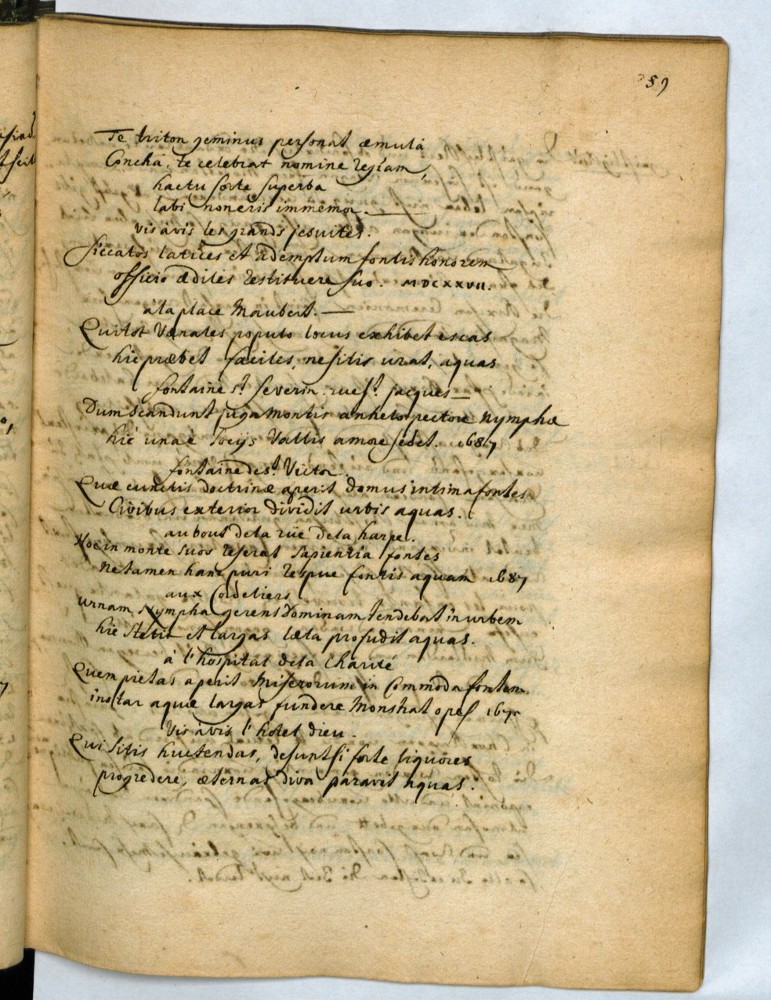 59
Te triton geminus personat æmula
Concha, te celebrat nomine regiam,
hac tu sorte superba
labi non eris immemor.
vis à vis les grands jesuites.
Siccatos latices et ademptum fontis honorem
officio ædiles restituere suo. MDCXXVII.
à la place Maubert.
Qui tot Vænales populo locus exhibet escas
hic præbet faciles, ne sitis urat, aquas
fontaine St. Severin rue St. jacques
Dum scandunt juga Montis anhelo pectore Nymphæ
hic una è socijs Vallis amore sedet. 1687
fontaine de St. Victor.
Quæ cunctis doctrinæ aperit Domus intima fontes
Civibus exterior dividit urbis aquas.
au bout de la rüe de la harpe.
Hoc in monte suos reserat sapientia fontes
Ne tamen hanc puri respue fontis aquam 1687
aux Cordeliers
Urnam Nympha gerens Dominam tendebat in urbem
hic stetit et largas læta profudit aquas.
à l'hospital de la Charité
Quem pietas aperit Miserorum in Commoda fontem
instar aquæ largas fundere Monstrat opes 167
Vis à vis l'hotel dieu.
Qui sitis huc tendas, desunt si forte liquores
progredere, æternas diva paravit aquas.